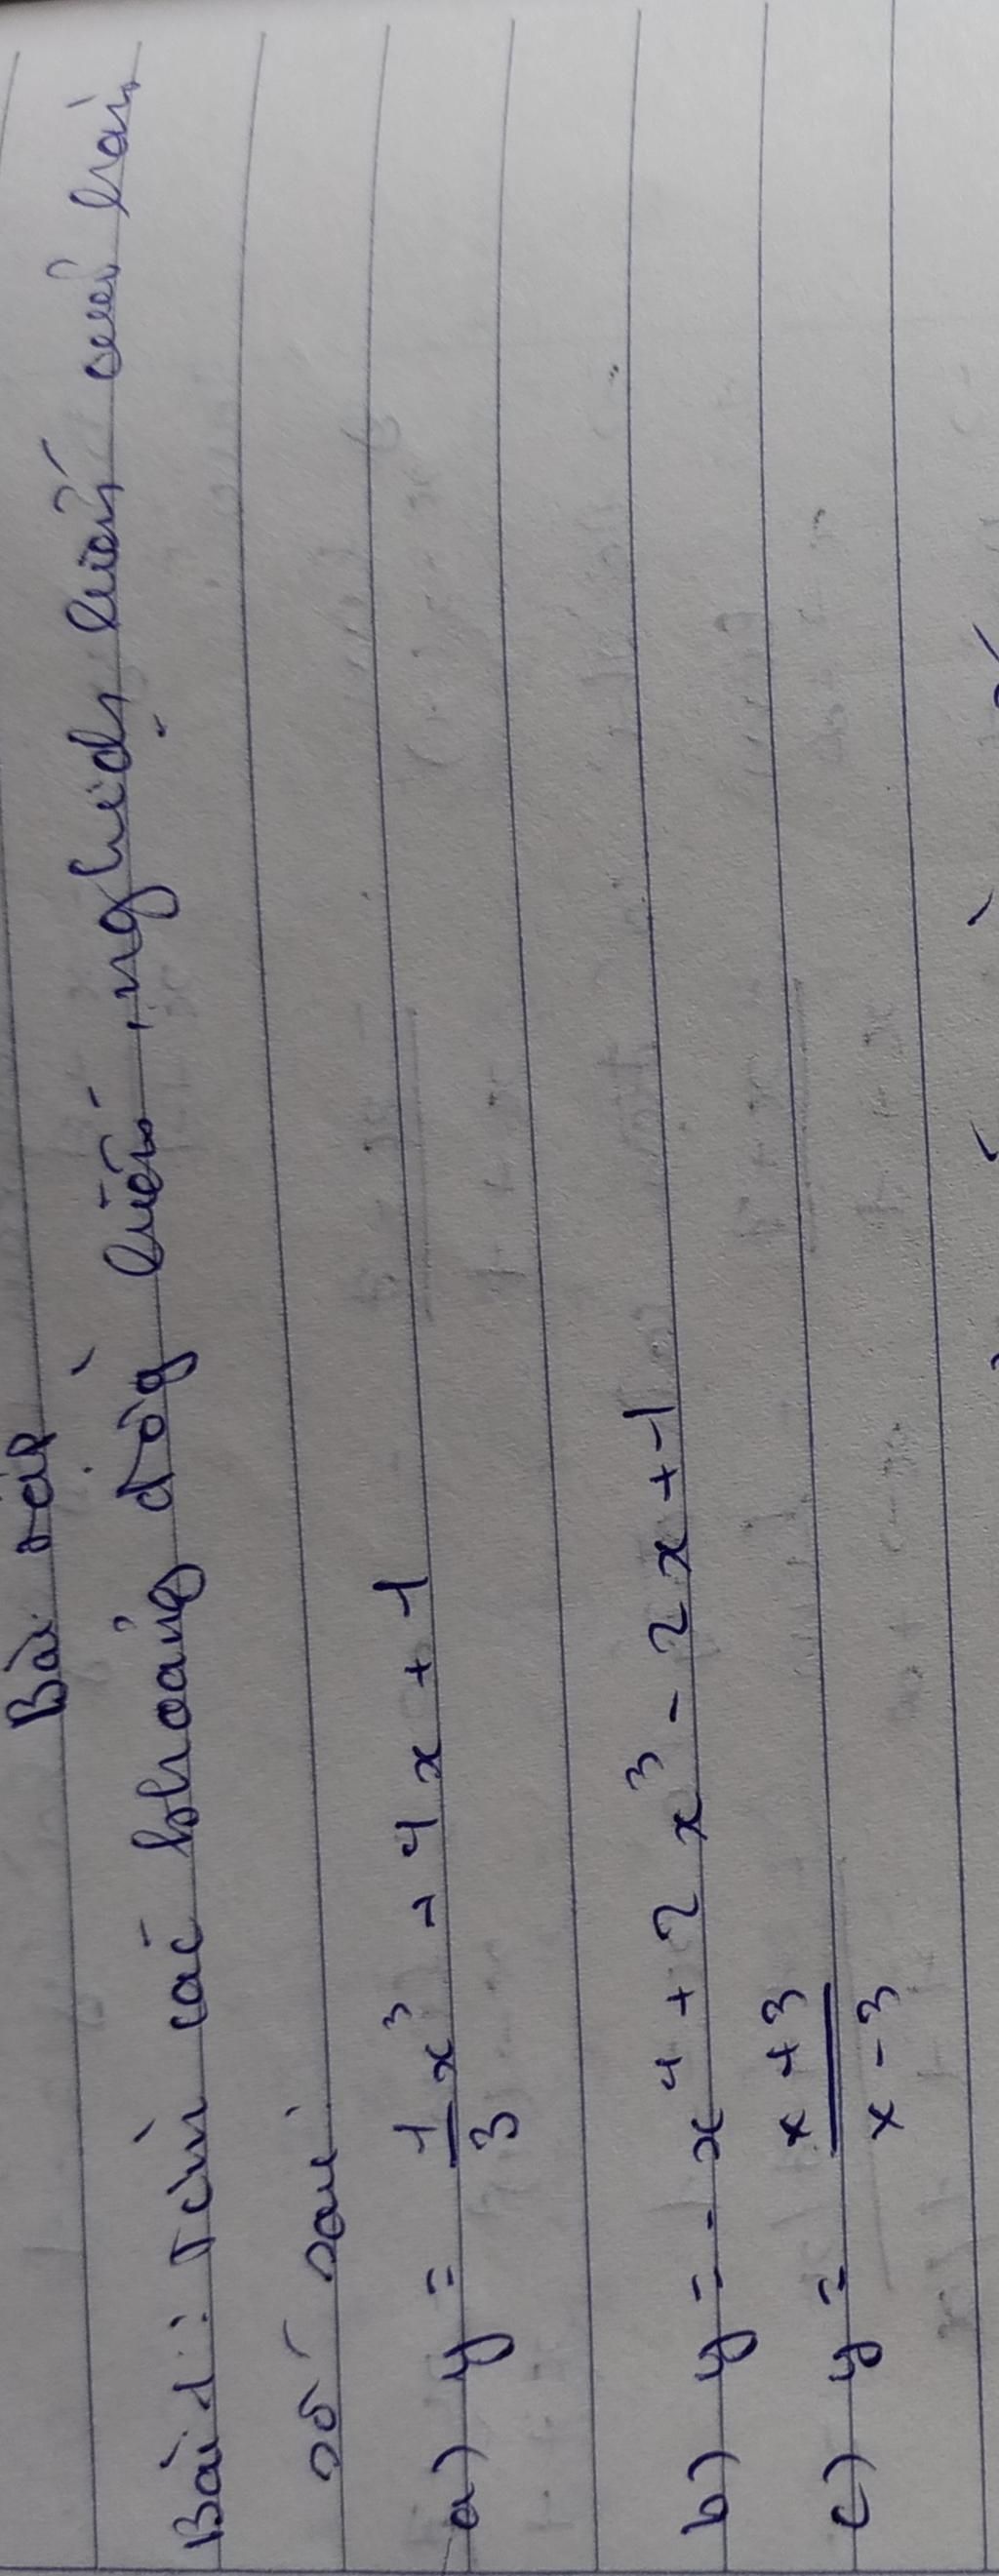 Bài tập
Bài 1: Tìm các khoảng đồg biến, nghịch biến của hàm
số sau:
a) y = 1/3 x³ - 4x + 1
b) y = - x⁴ + 2x³ - 2x + 1
c) y = x + 3 / x - 3